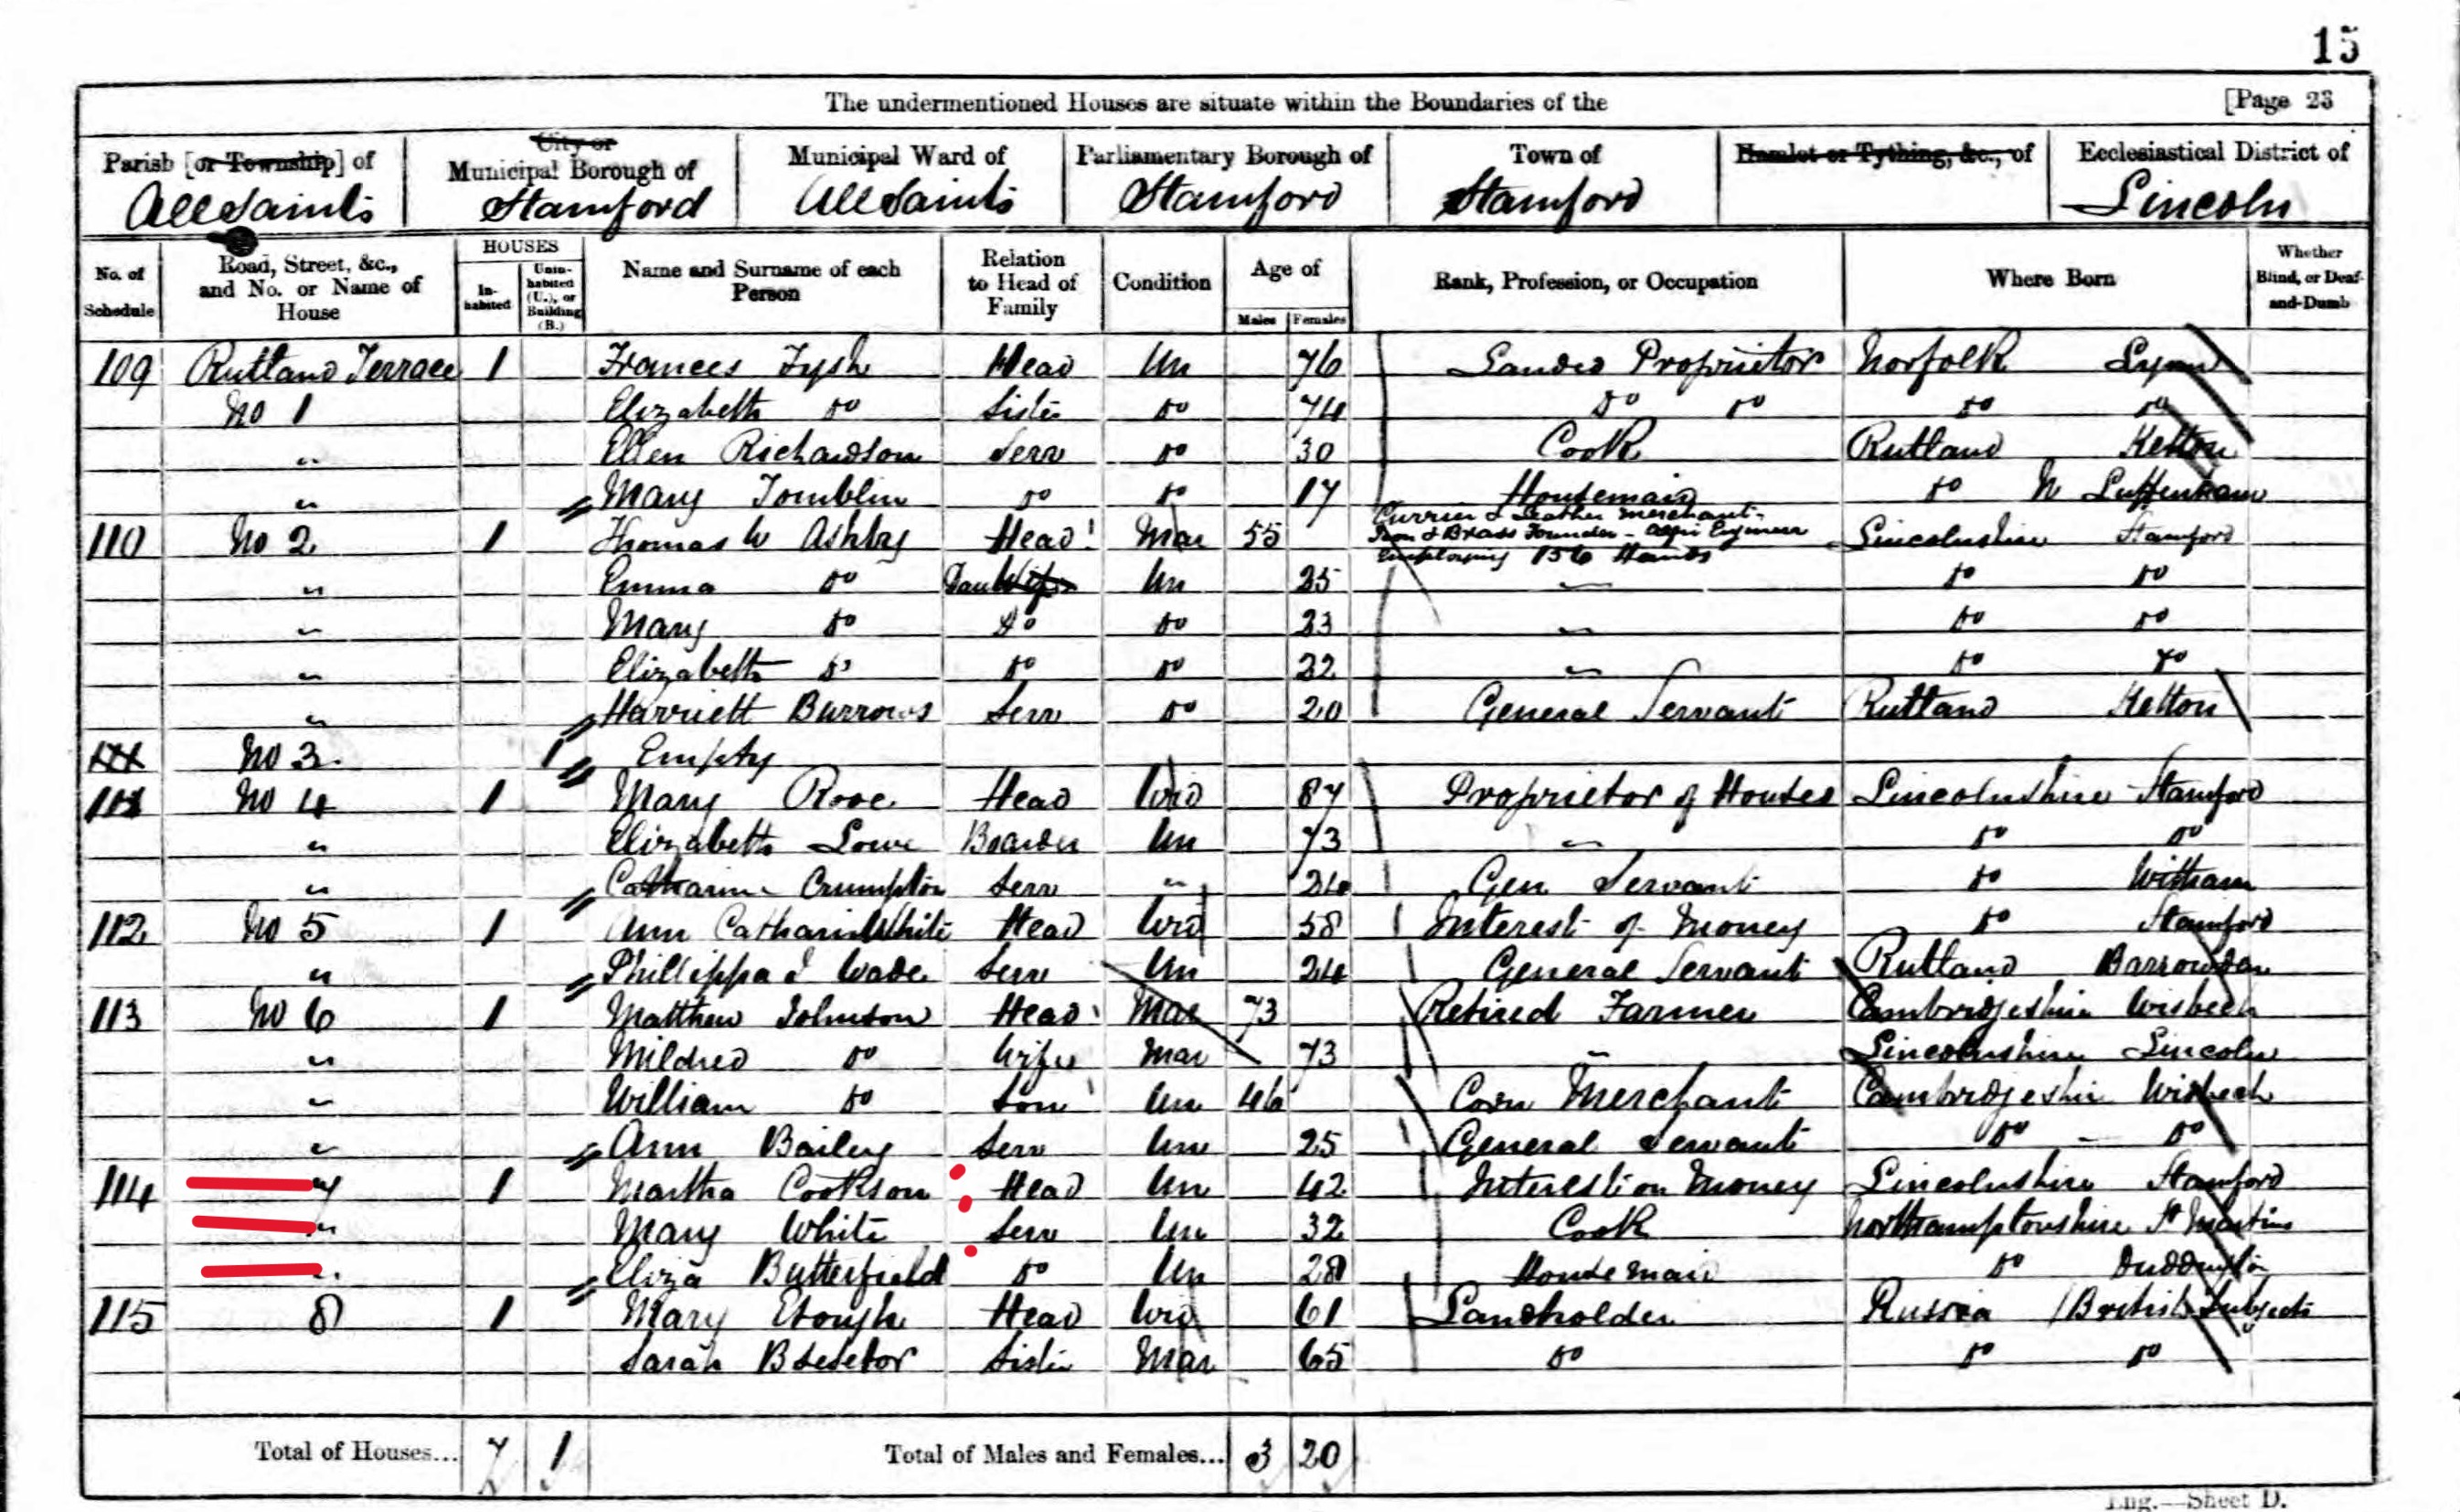 15
The undermentioned Houses are situate within the Boundaries of the [Page 23
Parish [or Township] of City or Municipal Borough of Municipal Ward of Parliamentary Borough of Town of Hamlet or Tything, &c., of Ecclesiastical District of
All Saints Stamford All Saints Stamford Stamford Lincoln
No. of Schedule Road, Street, &c., and No. or Name of House HOUSES In-habited Unin-habited (U.), or Building (B.) Name and Surname of each Person Relation to Head of Family Condition Age of Males Females Rank, Profession, or Occupation Where Born Whether Blind, or Deaf-and-Dumb
109 Rutland Terrace 1 Frances Tysh Head Un 76 Landed Proprietor Norfolk Lynn
No 1 Elizabeth Do Sister Do 74 Do Do Do Do
" Ellen Richardson Serv Do 30 Cook Rutland Ketton
" Mary Tomblin Do Do 17 Housemaid Do N Luffenham
110 No 2 1 Thomas W Ashby Head Mar 55 Currier & Leather Merchant - Iron & Brass Founder - Agri Engineer Employing 156 Hands Lincolnshire Stamford
" Emma Do Dau Wife Un 25 " Do Do
" Mary Do Do Do 23 " Do Do
" Elizabeth Do Do Do 22 " Do Do
" Harriett Burrows Serv Do 20 General Servant Rutland Ketton
111 No 3 1 Empty
111 No 4 1 Mary Wid 87 Proprietor of Houses Lincolnshire Stamford
" Elizabeth Lowe Boarder Un 73 " Do Do
" Catharine Crumpton Serv " 24 Gen Servant Do Witham
112 No 5 1 Ann Catharine White Head Wid 58 Interest of Money Do Stamford
" Phillippa J Wade Serv Un 24 General Servant Rutland Barrowden
113 No 6 1 Matthew Johnson Head Mar 73 Retired Farmer Cambridgeshire Wisbech
" Mildred Do Wife Mar 73 " Lincolnshire Lincoln
" William Do Son Un 46 Corn Merchant Cambridgeshire Wisbech
" Ann Bailey Serv Un 25 General Servant Do - Do
114 7 1 Martha Cookson Head Un 42 Interest on Money Lincolnshire Stamford
" Mary White Serv Un 32 Cook Northamptonshire St Martins
" Eliza Butterfield Do Un 28 Housemaid Do Duddington
115 8 1 Mary Etough Head Wid 61 Landholder Russia (British Subject
Sarah Sister Mar 65 Do Do Do
Total of Houses... 7 1 Total of Males and Females... 3 20
Eng.—Sheet D.